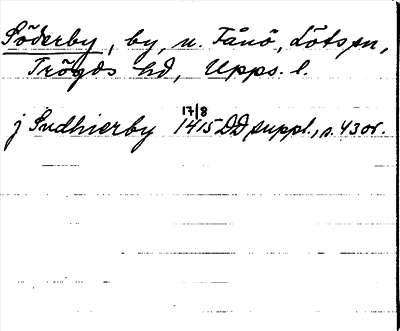 Söderby, by, n. Tånö, Löts sn,
Trögds hd, Upps. l.
17/8
j Sudhierby 1415 DD suppl., s. 430r.